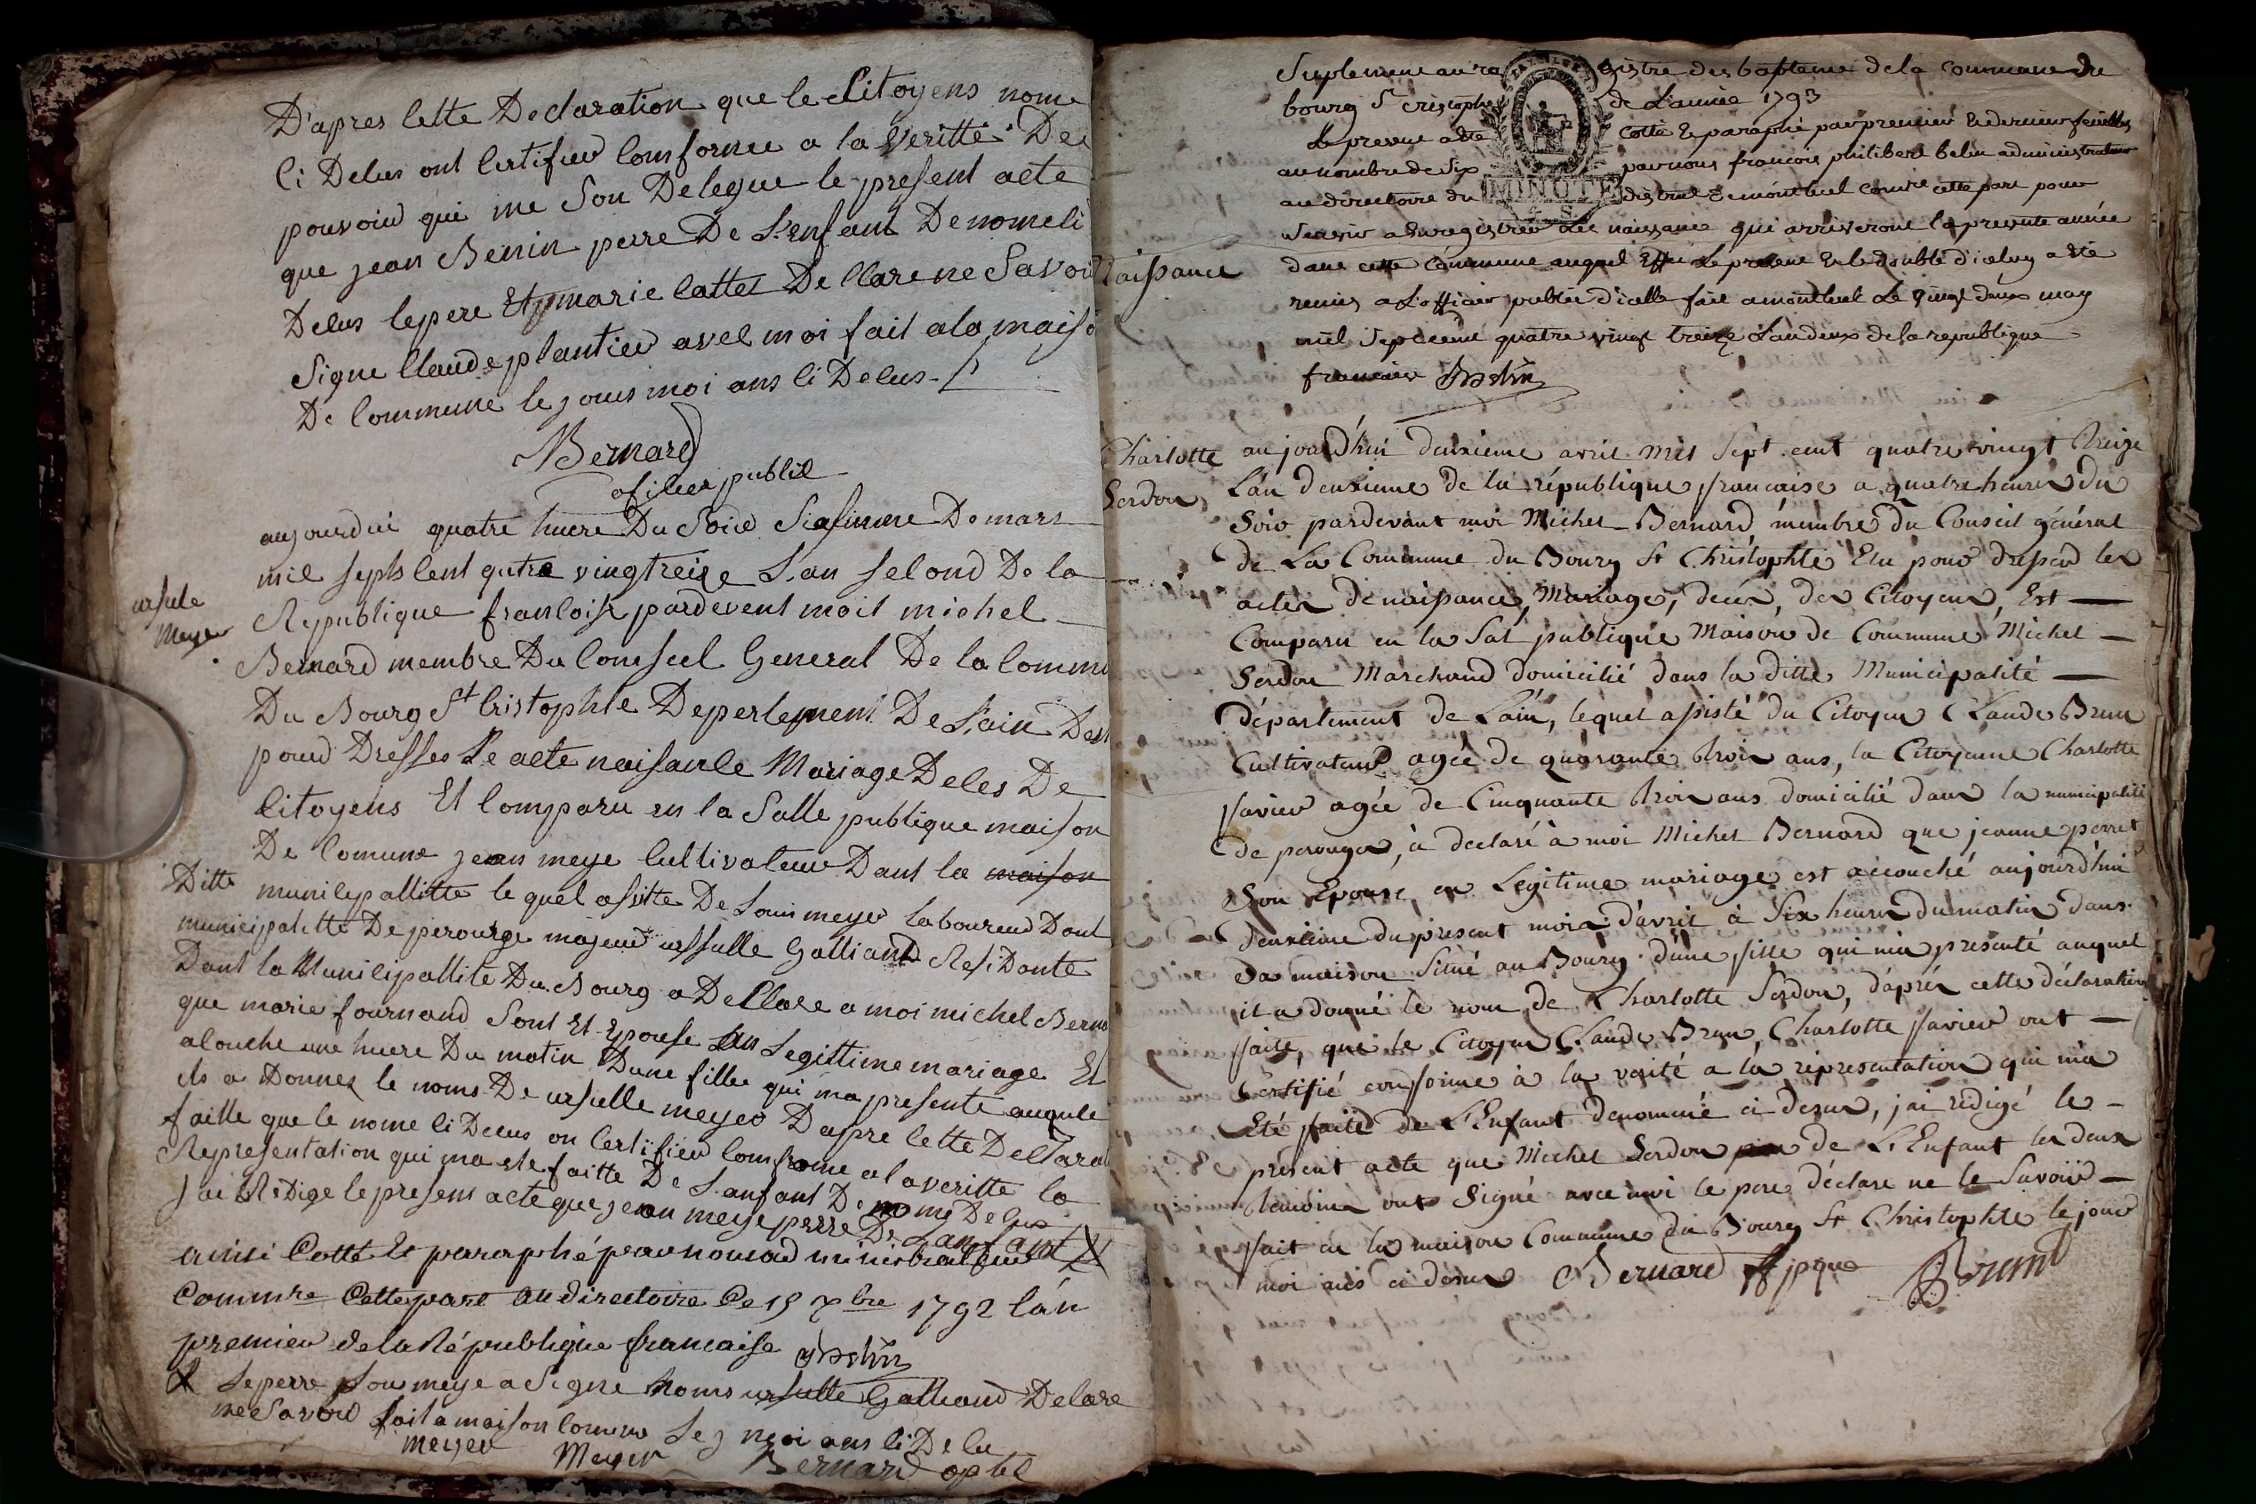 D'apres lette Declaration que le Citoyens nome
Ci Delus ont Certifier Comforme a la veritte Des
pouvoird qui me Son Delegue le present acte
que jean Benin perre De L'enfant Denomeli
Delus lepere Et marie lattet De Clare ne Savoir
Signe Claude plantier avel moi fait ala maiso
De Commune le jours moi ans Ci Delus
Bernard
ofilier publil
ursule
Meyer
aujourdui quatre huere Du Soire De mars
mil septs Cent qutre vingtreize L'an selond De la
Republique franloise pardevent moit michel
Bernard membre Du Conseel General De la Commu
Du Bourg St Cristophle Depertement De L'ain
pourd Dresses Le acte naisanle Mariage Deles De
Citoyens Et Comparu en la Salle publique maison
De Comune jean meye Cultivateur Dant la maison
Ditte munilepallitte le quel asitte De Louis meyer laboureur Dant
municipalitte De perourge majeur ursulle Galliand Residante
Dant la Munilipallite Du Bourg a DeClare a moi michel Berna
que marie fournand Sont Et Epouse Legittime mariage Et
alouche une huere Du matin Dune fille qui ma presente auquele
ils a Donnez le noms De ursulle meyer Dapre lette DeClarat
faitte que le nome Ci Delus on Certifier Comforme alaveritte la
Representation qui ma ete faitte De L'anfant De nome Delus
J'ai ReDige le present acte que jean meye perre De Lanfant
ainsi Cotté Et paraphé par nous administrateur
Commre Cette part au directoire Ce 15 Xbre 1792 l'an
premier de la République francaise Belin
Leperre Loui meye a Signe noms ursulle Galliand Delare
ne Savoir fait a maison Comune Le j moi ans Ci Delu
meyer Meyer Bernard opbl
Suplement au registre des bapteme de la commune du
bourg St cristophe de L'année 1793
Le present a été cotté et paraphé par premier et dernier feuillet
au nombre de six par nous françois philibert belin administrateur
au directoire du district de montluel comre cette part pour
MINUTE
4. S
Servir a Enregistrer Les naissance qui arriveront la presente année
Naissance
dans cette Commune auquel Effet Le present Et le double d'icelui a été
remis a L'officier public d'icelle fait a montluel Le vingt deux may
mil Sept cent quatre vingt treize L'an deux de la republique
francaise Belin
Charlotte
Serdon
aujourd'hui deuxieme avril mil Sept cent quatre vingt treize
L'an deuxieme de la république francaise a quatre heures du
Soir pardevant moi Michel Bernard membre du Conseil général
de La Commune du Bourg St Christophle Elu pour dresser les
actes de naissances, Mariages, decès, des Citoyens, Est
Comparu en la Sal publique Maison de Commune Michel
Serdon Marchand domicilié dans la ditte Municipalité
département de L'ain, lequel assisté du Citoyen Claude Brun
Cultivateur agée de quarante trois ans, la Citoyenne Charlotte
favier agée de Cinquante trois ans domicilié dans la municipalité
de perouges, à declaré à moi Michel Bernard que jeanne perret
Son Epouse, en Legitime mariage est accouché aujourd'hui
deuxieme du present mois d'avril à Six heures du matin dans
Sa maison Situé au Bourg d'une fille qui m'a presenté auquel
il a donné le nom de Charlotte Serdon, d'après cette déclaration
faite, que le Citoyen Claude Brun, Charlotte favier ont
Certifié conforme à la verité a la representation qui m'a
Eté faite de L'Enfant denommé ci desus, j'ai redigé le
présent acte que Michel Serdon pere de L'Enfant les deux
temoins ont Signé avec moi le pere déclare ne le Savoir
fait en la maison Commune du Bourg St Christophle le jour
moi ans ci desus Bernard Brun